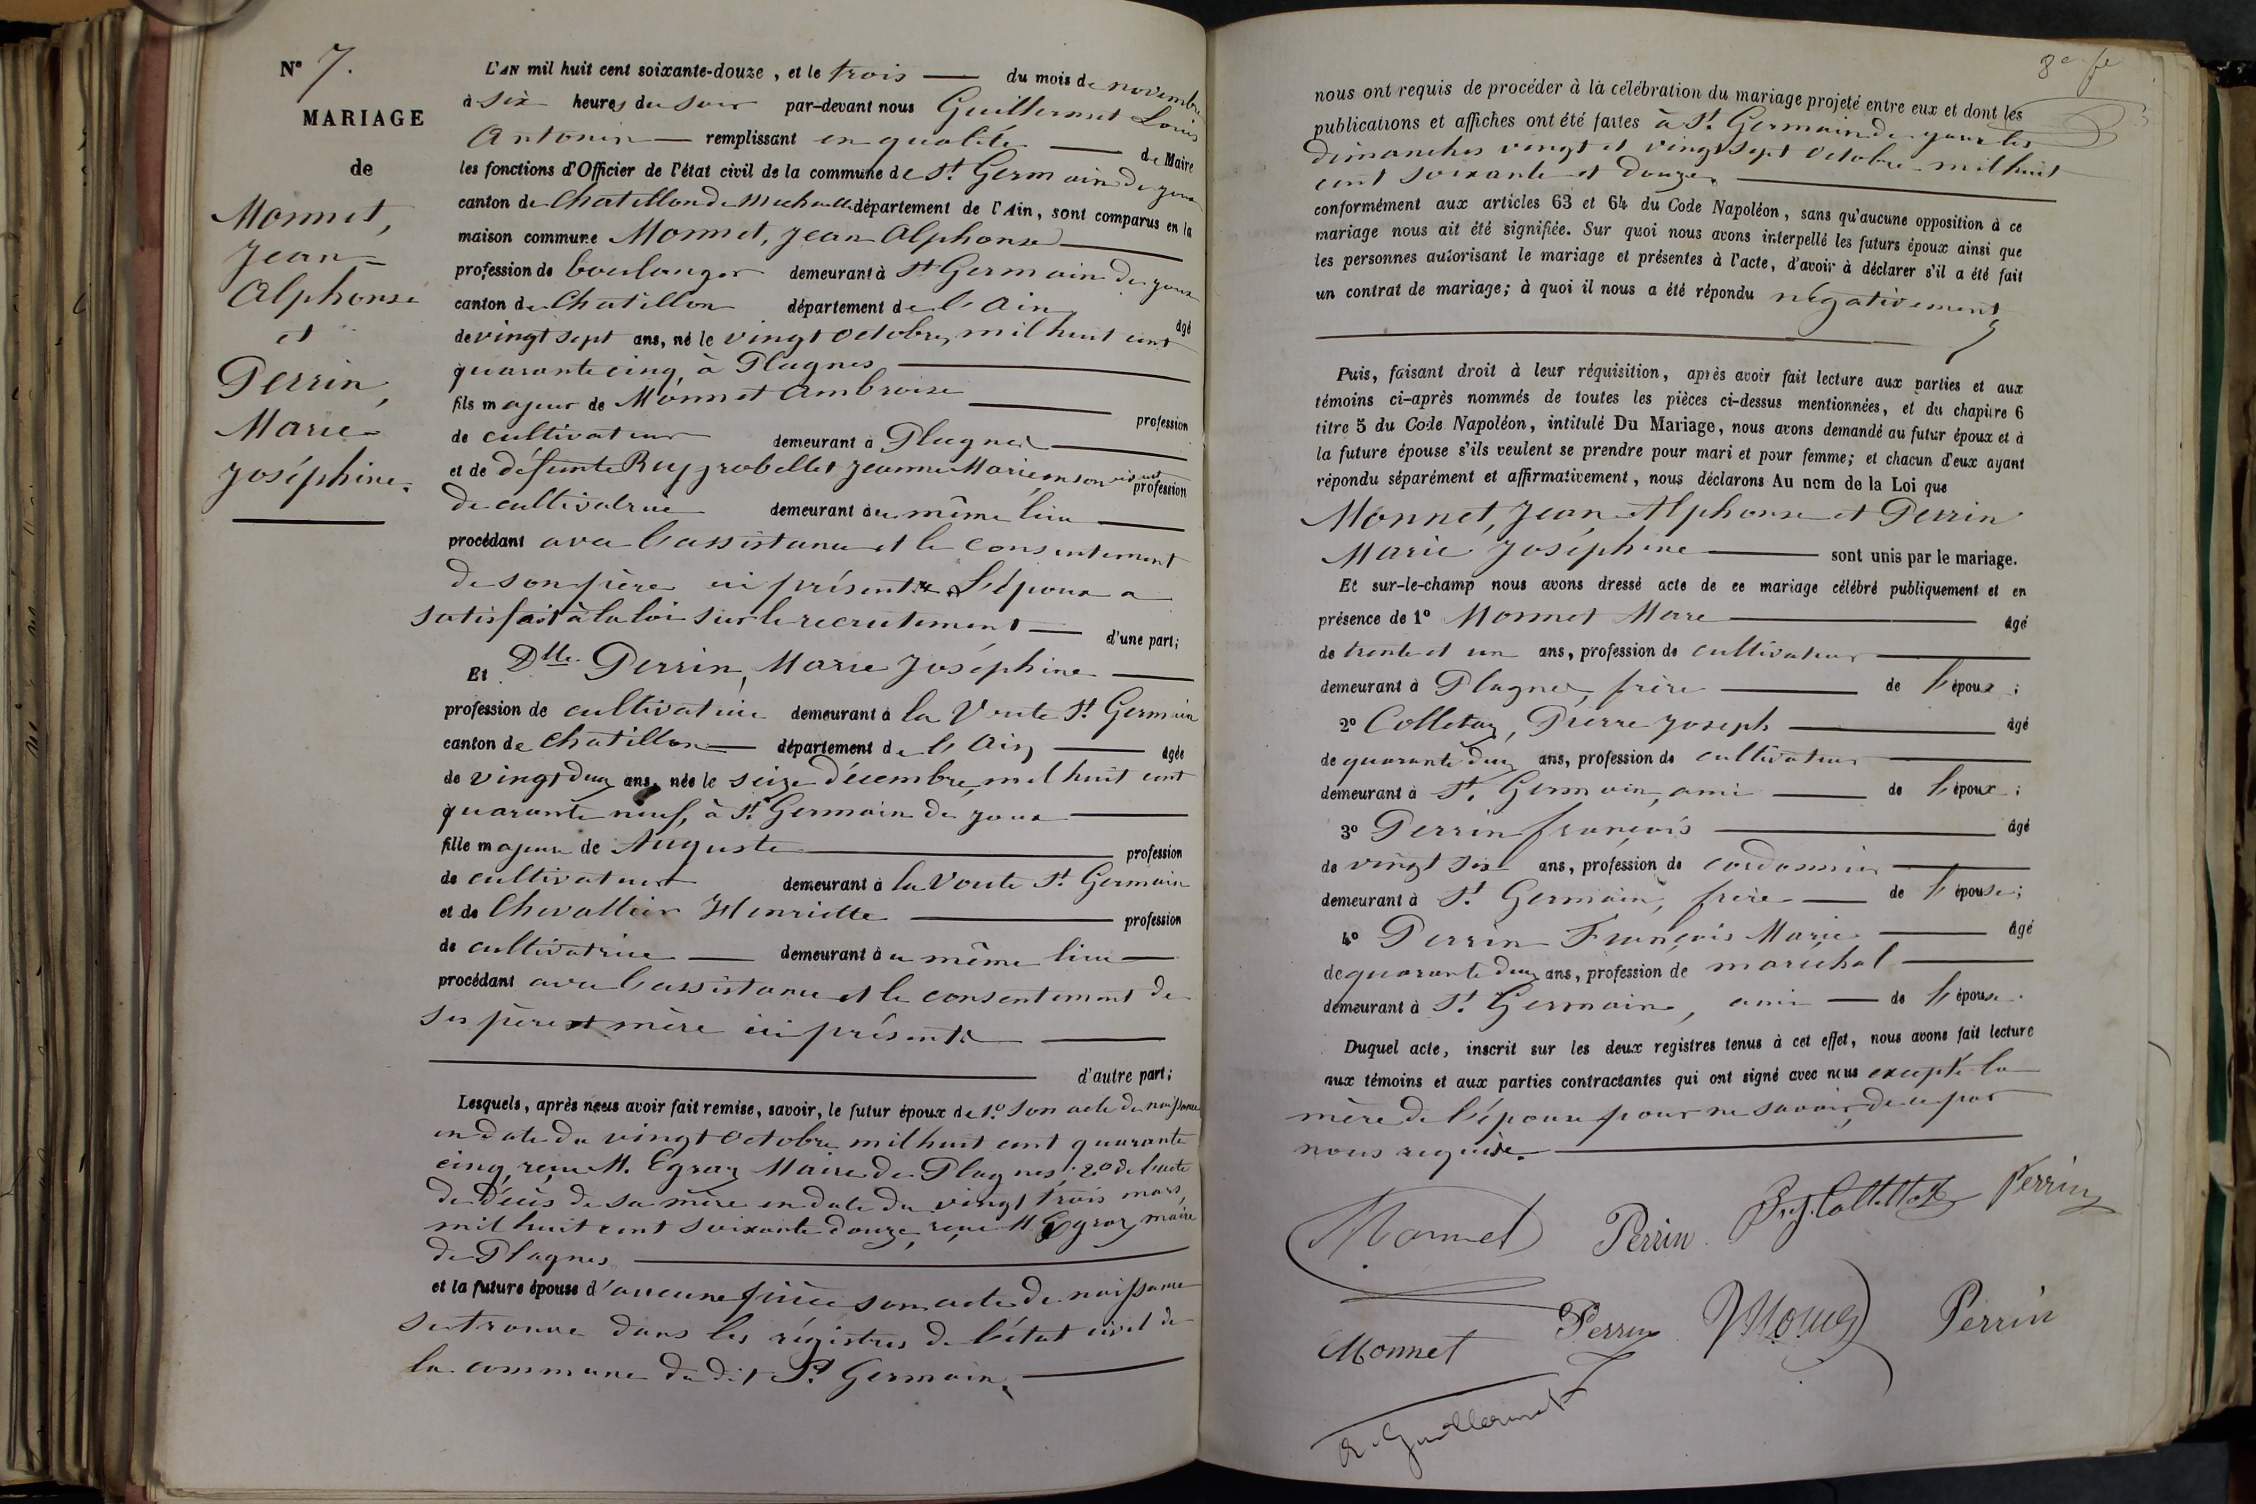 N° 7.
MARIAGE
de
Monnet,
Jean-
Alphonse
et
Perrin,
Marie
Joséphine.
L'AN mil huit cent soixante-douze, et le trois du mois de novembre
à six heures du soir par-devant nous Guillermet Louis
Antonin remplissant en qualité de Maire
les fonctions d'Officier de l'état civil de la commune de St. Germain de joux
canton de Chatillon de Michaille département de l'Ain, sont comparus en la
maison commune Monnet, Jean Alphonse
profession de boulanger demeurant à St Germain de joux
canton de Chatillon département de l'Ain âgé
de vingt sept ans, né le vingt octobre, mil huit cent
quarante cinq, à Plagnes
fils majeur de Monnet Ambroise profession
de cultivateur demeurant à Plagnes
et de défunte Reygrobellet Jeanne Marie en son vivant profession
de cultivatrice demeurant au même lieu
procédant avec l'assistance et le consentement
de son père ici présent. L'époux a
satisfait à la loi sur le recrutement d'une part;
Et Dlle. Perrin, Marie Joséphine
profession de cultivatrice demeurant à la Voute St. Germain
canton de Chatillon département de l'Ain âgée
de vingt deux ans, née le seize décembre, mil huit cent
quarante neuf, à St. Germain de joux
fille majeure de Auguste profession
de cultivateur demeurant à la Voute St. Germain
et de Chevallier Henriette profession
de cultivatrice demeurant au même lieu
procédant avec l'assistance et le consentement de
ses père et mère ici présents
d'autre part;
Lesquels, après nous avoir fait remise, savoir, le futur époux de 1.° Son acte de naissance
en date du vingt octobre mil huit cent quarante
cinq, reçu M. Egraz Maire de Plagnes; 2.° de l'acte
de décès de sa mère en date du vingt trois mars,
mil huit cent soixante douze, reçu M. Egraz maire
de Plagnes
et la future épouse d'aucune pièce son acte de naissance
se trouve dans les régistres de l'état civil de
la commune du dit St. Germain.
8e fe
nous ont requis de procéder à la célébration du mariage projeté entre eux et dont les
publications et affiches ont été faites à St. Germain de joux les
dimanches vingt et vingt sept octobre mil huit
cent soixante et douze.
conformément aux articles 63 et 64 du Code Napoléon, sans qu'aucune opposition à ce
mariage nous ait été signifiée. Sur quoi nous avons interpellé les futurs époux ainsi que
les personnes autorisant le mariage et présentes à l'acte, d'avoir à déclarer s'il a été fait
un contrat de mariage; à quoi il nous a été répondu négativement
Puis, faisant droit à leur réquisition, après avoir fait lecture aux parties et aux
témoins ci-après nommés de toutes les pièces ci-dessus mentionnées, et du chapitre 6
titre 5 du Code Napoléon, intitulé Du Mariage, nous avons demandé au futur époux et à
la future épouse s'ils veulent se prendre pour mari et pour femme; et chacun d'eux ayant
répondu séparément et affirmativement, nous déclarons Au nom de la Loi que
Monnet, Jean Alphonse et Perrin
Marie Joséphine sont unis par le mariage.
Et sur-le-champ nous avons dressé acte de ce mariage célébré publiquement et en
présence de 1° Monnet Marc âgé
de trente et un ans, profession de cultivateur
demeurant à Plagnes, frère de l'époux;
2° Colletaz, Pierre Joseph âgé
de quarante deux ans, profession de cultivateur
demeurant à St. Germain, ami de l'époux;
3° Perrin françois âgé
de vingt six ans, profession de cordonnier
demeurant à St. Germain, frère de l'épouse;
4° Perrin François Marie âgé
de quarante deux ans, profession de maréchal
demeurant à St. Germain, ami de l'épouse.
Duquel acte, inscrit sur les deux registres tenus à cet effet, nous avons fait lecture
aux témoins et aux parties contractantes qui ont signé avec nous excepté la
mère de l'épouse pour ne savoir, de ce par
nous requise.
Monnet Perrin Collettaz Perrin
Monnet Perrin Monnet Perrin
A. Guillermet